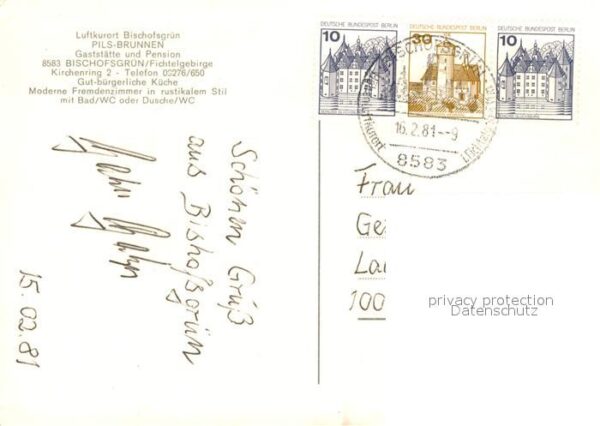 Luftkurort Bischofsgrün
PILS-BRUNNEN
Gaststätte und Pension
8583 BISCHOFSGRÜN/Fichtelgebirge
Kirchenring 2 - Telefon 09276/650
Gut-bürgerliche Küche
Moderne Fremdenzimmer in rustikalem Stil
mit Bad/WC oder Dusche/WC
DEUTSCHE BUNDESPOST BERLIN
10
DEUTSCHE BUNDESPOST BERLIN
30
DEUTSCHE BUNDESPOST BERLIN
10
BISCHOFSGRÜN
16.2.81--9
8583
Schönen Gruß
aus Bishoßgrün
15.02.81
Frau
Ge
La
100
privacy protection
Datenschutz